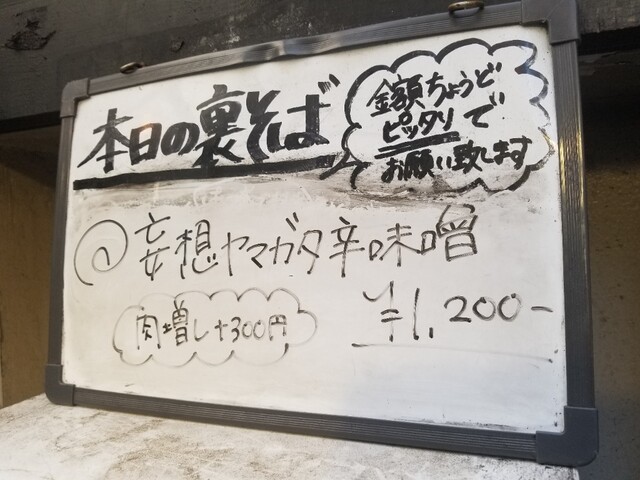 本日の裏そば
金額ちょうど
ピッタリで
お願い致します
@妄想ヤマガタ辛味噌
肉増し+300円
¥1,200-